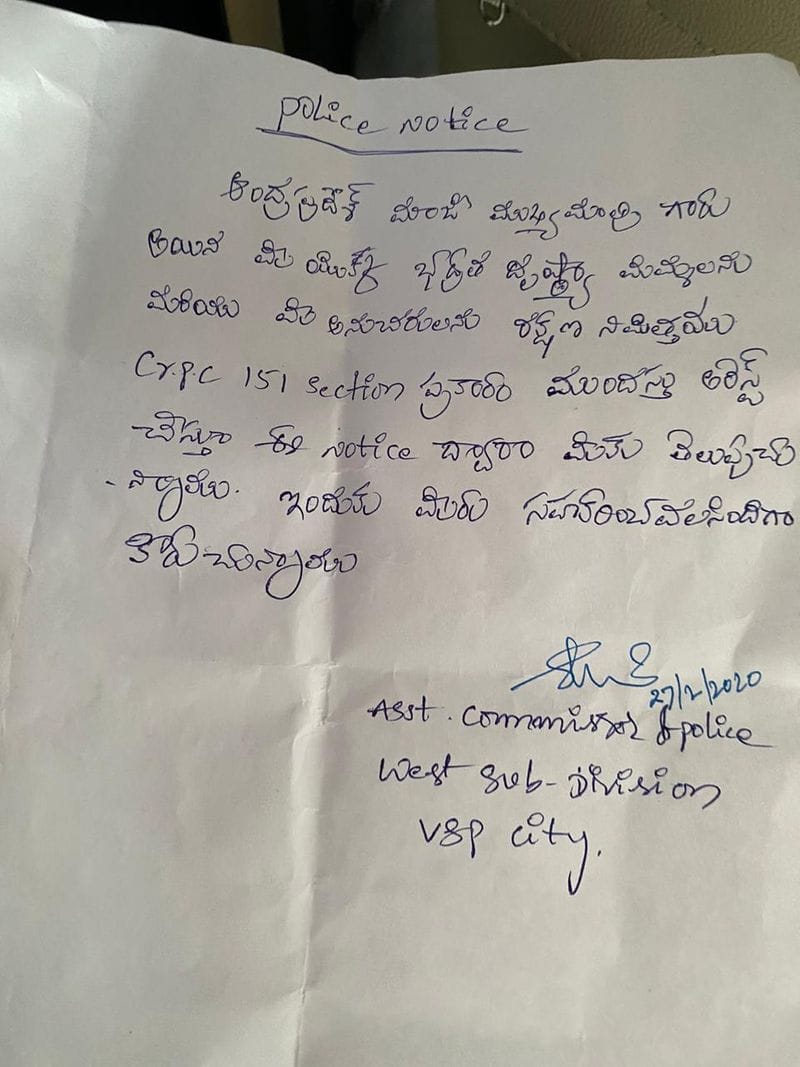 Police Notice
ఆంధ్రప్రదేశ్ మాజీ ముఖ్యమంత్రి గారు
అయిన మీ యొక్క భద్రత దృష్ట్యా మిమ్మలను
మరియు మీ అనుచరులను రక్షణ నిమిత్తము
Cr.P.C 151 section ప్రకారం ముందస్తు అరెస్ట్
చేస్తూ ఈ Notice ద్వారా మీకు తెలుపుచు
-న్నాము. ఇందుకు మీరు సహకరించవలసిందిగా
కోరుచున్నాము
27/2/2020
Asst. Commissioner of police
West Sub-Division
VSP City.